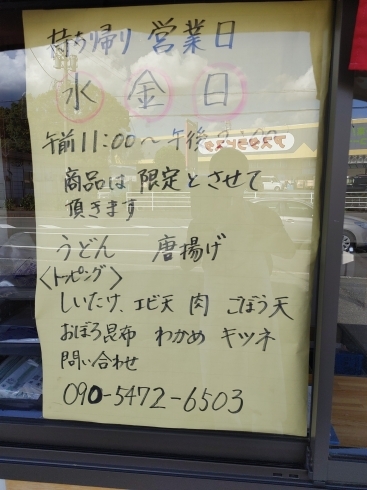 持ち帰り 営業日
水 金 日
午前11:00〜午後
商品は限定とさせて
頂きます
うどん 唐揚げ
〈トッピング〉
しいたけ、エビ天 肉 ごぼう天
おぼろ昆布 わかめ キツネ
問い合わせ
090-5472-6503